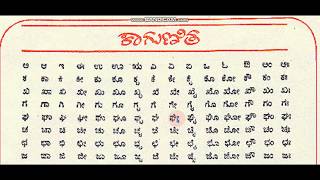 ಕಾಗುಣಿತ
ಅ ಆ ಇ ಈ ಉ ಊ ಋ ಎ ಏ ಐ ಒ ಓ ಔ ಅಂ ಅಃ
ಕ ಕಾ ಕಿ ಕೀ ಕು ಕೂ ಕೃ ಕೆ ಕೇ ಕೈ ಕೊ ಕೋ ಕೌ ಕಂ ಕಃ
ಖ ಖಾ ಖಿ ಖೀ ಖು ಖೂ ಖೃ ಖೆ ಖೇ ಖೈ ಖೊ ಖೋ ಖೌ ಖಂ ಖಃ
ಗ ಗಾ ಗಿ ಗೀ ಗು ಗೂ ಗೃ ಗೆ ಗೇ ಗೈ ಗೊ ಗೋ ಗೌ ಗಂ ಗಃ
ಘ ಘಾ ಘಿ ಘೀ ಘು ಘೂ ಘೃ ಘೆ ಘೇ ಘೈ ಘೊ ಘೋ ಘೌ ಘಂ ಘಃ
ಚ ಚಾ ಚಿ ಚೀ ಚು ಚೂ ಚೃ ಚೆ ಚೇ ಚೈ ಚೊ ಚೋ ಚೌ ಚಂ ಚಃ
ಛ ಛಾ ಛಿ ಛೀ ಛು ಛೂ ಛೃ ಛೆ ಛೇ ಛೈ ಛೊ ಛೋ ಛೌ ಛಂ ಛಃ
ಜ ಜಾ ಜಿ ಜೀ ಜು ಜೂ ಜೃ ಜೆ ಜೇ ಜೈ ಜೊ ಜೋ ಜೌ ಜಂ ಜಃ